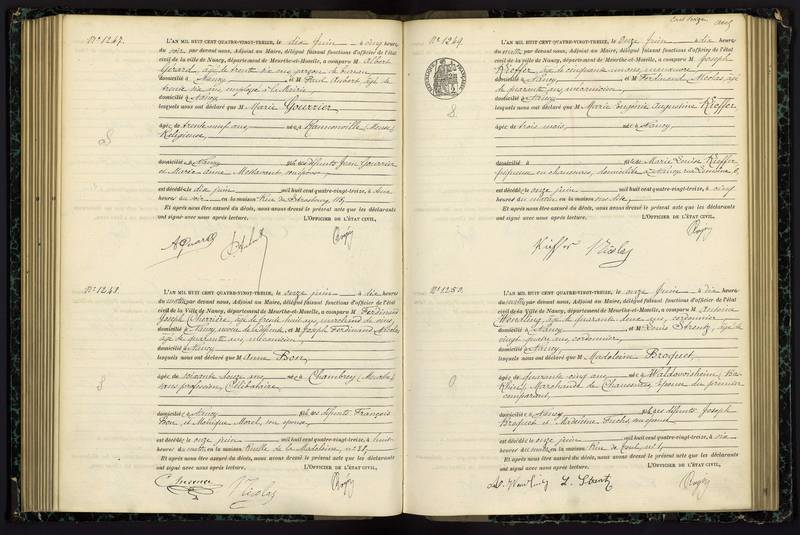 N° 1247.
L'AN MIL HUIT CENT QUATRE-VINGT-TREIZE, le dix Juin à onze heures
du soir par devant nous, Adjoint au Maire, délégué faisant fonctions d'officier de l'état
civil de la Ville de Nancy, département de Meurthe-et-Moselle, a comparu M Albert
Gérard, âgé de trente six ans, garçon de bureau
domicilié à Nancy et M Paul Aubert, âgé de
trente six ans, employé à la Mairie
domicilié à Nancy
lesquels nous ont déclaré que M Marie Gourrier
âgée de trente neuf ans, née à Hannonville (Meuse)
Religieuse,
domiciliée à Nancy fille des défunts Jean Gourrier
et Marie Anne son épouse,
est décédée le dix juin mil huit cent quatre-vingt-treize, à
heures du soir en la maison Rue de Strasbourg,
Et après nous être assuré du décès, nous avons dressé le présent acte que les déclarants
ont signé avec nous après lecture. L'OFFICIER DE L'ÉTAT CIVIL,
N° 1248.
L'AN MIL HUIT CENT QUATRE-VINGT-TREIZE, le onze juin à dix heures
du matin par devant nous, Adjoint au Maire, délégué faisant fonctions d'officier de l'état
civil de la Ville de Nancy, département de Meurthe-et-Moselle, a comparu M Ferdinand
Joseph âgé de trente huit ans, marchand de vins
domicilié à Nancy, et M Joseph Ferdinand Nicolas
âgé de quarante ans, mécanicien,
domicilié à Nancy
lesquels nous ont déclaré que M Anne Bon,
âgée de soixante douze ans née à Chambrey (Meurthe)
sans profession, Célibataire
domiciliée à Nancy fille des défunts François
Bon et Monique Morel, son épouse,
est décédée le onze juin mil huit cent quatre-vingt-treize, à
heures du matin en la maison Ruelle de la Madeleine, n°
Et après nous être assuré du décès, nous avons dressé le présent acte que les déclarants
ont signé avec nous après lecture. L'OFFICIER DE L'ÉTAT CIVIL,
Nicolas
N° 1249.
L'AN MIL HUIT CENT QUATRE-VINGT-TREIZE, le onze Juin à dix
heures du matin par devant nous, Adjoint au Maire, délégué faisant fonctions d'officier de l'état
civil de la Ville de Nancy, département de Meurthe-et-Moselle, a comparu M Joseph
Kieffer, âgé de cinquante
domicilié à Nancy et M Ferdinand Nicolas, âgé
de quarante ans, mécanicien,
domicilié à Nancy
lesquels nous ont déclaré que M Marie Eugénie Augustine Kieffer
âgée de trois mois, née à Nancy,
domiciliée à fille de Marie Louise Kieffer
piqueuse en chaussures, domiciliée à Nancy rue
est décédée le onze juin mil huit cent quatre-vingt-treize, à cinq
heures du matin en la maison
Et après nous être assuré du décès, nous avons dressé le présent acte que les déclarants
ont signé avec nous après lecture. L'OFFICIER DE L'ÉTAT CIVIL,
Kieffer Nicolas
N° 1250.
L'AN MIL HUIT CENT QUATRE-VINGT-TREIZE, le onze Juin à dix heures
du matin par devant nous, Adjoint au Maire, délégué faisant fonctions d'officier de l'état
civil de la Ville de Nancy, département de Meurthe-et-Moselle, a comparu M Antoine
âgé de quarante deux ans, cordonnier
domicilié à Nancy et M Louis Strentz, âgé de
vingt quatre ans, cordonnier,
domicilié à Nancy
lesquels nous ont déclaré que M Madeleine Broquet,
âgée de quarante cinq ans née à Waldowisheim (Bas
Rhin) Marchande de Chaussures, épouse du premier
comparant,
domiciliée à Nancy fille des défunts Joseph
Broquet et Madeleine Fuchs, son épouse
est décédée le onze juin mil huit cent quatre-vingt-treize, à six
heures du matin en la maison Rue de Toul,
Et après nous être assuré du décès, nous avons dressé le présent acte que les déclarants
ont signé avec nous après lecture. L'OFFICIER DE L'ÉTAT CIVIL,